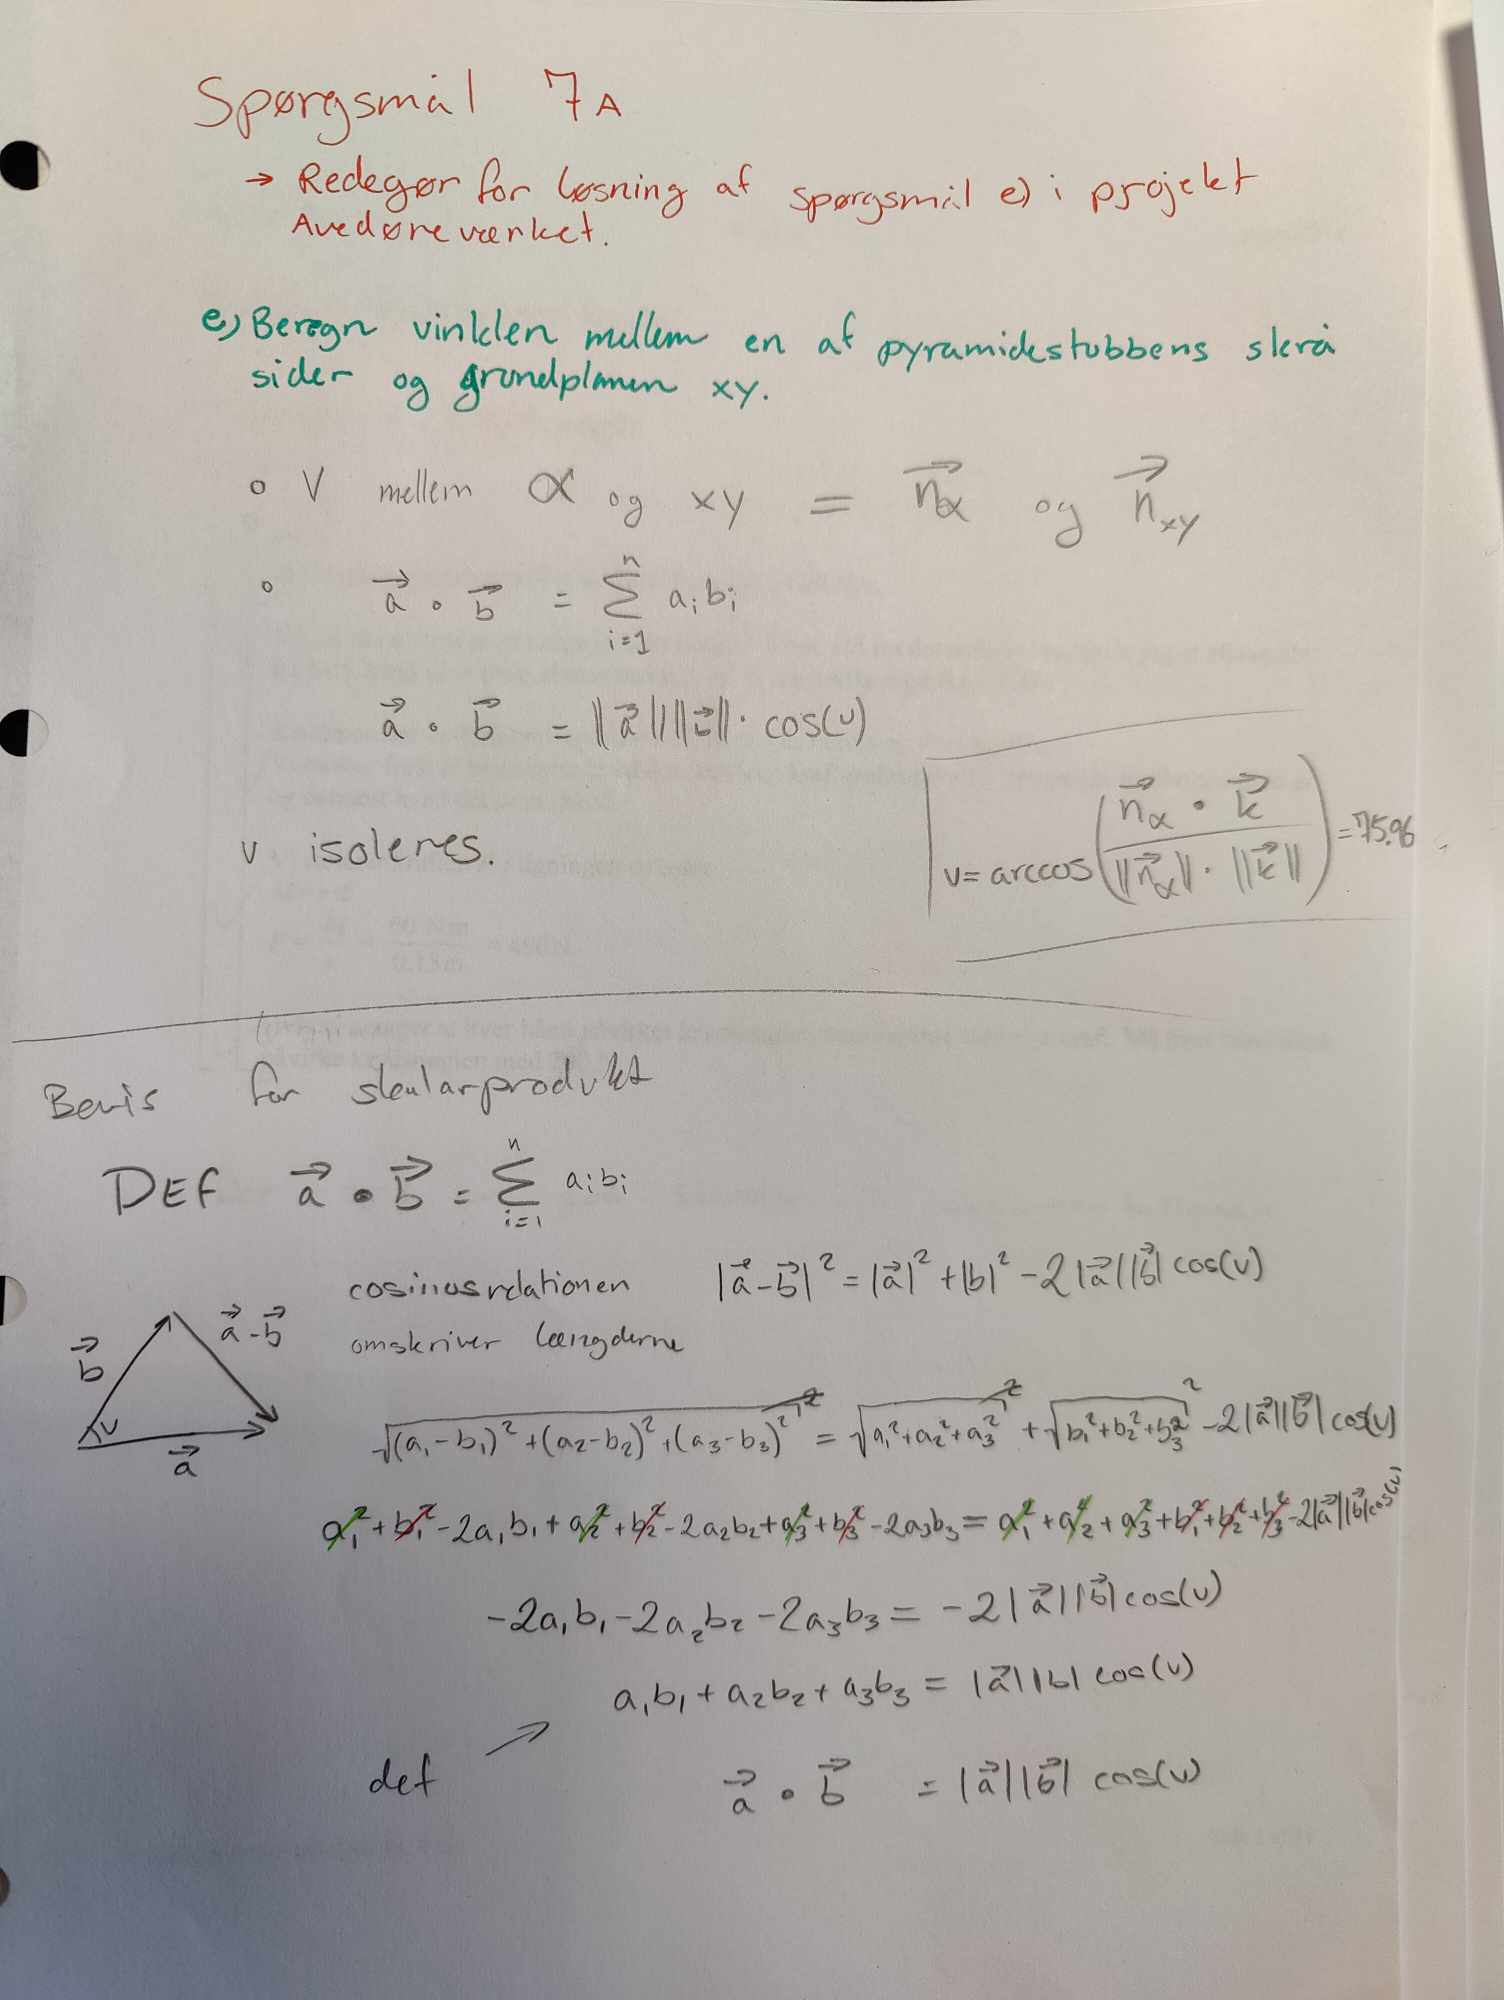 Spørgsmål 7A
→ Redegør for løsning af spørgsmål e) i projekt
Avedøreværket.
e) Beregn vinklen mellem en af pyramidestubbens skrå
sider og grundplanen xy.
∘ V mellem α og xy = n⃗α og n⃗xy
∘ a⃗ • b⃗ = ∑_{i=1}^{n} aᵢbᵢ
a⃗ • b⃗ = ||a⃗|| ||b⃗|| · cos(v)
v isoleres.
v = arccos( (n⃗α • k⃗) / (||n⃗α|| · ||k⃗||) ) = 75.96
Bevis for skalarprodukt
DEF a⃗ • b⃗ = ∑_{i=1}^{n} aᵢbᵢ
cosinusrelationen |a⃗-b⃗|² = |a⃗|² + |b|² - 2|a⃗||b⃗| cos(v)
omskriver længderne
b⃗ a⃗-b⃗
v
a⃗
√((a₁-b₁)² + (a₂-b₂)² + (a₃-b₃)²)² = √(a₁²+a₂²+a₃²)² + √(b₁²+b₂²+b₃²)² - 2|a⃗||b⃗| cos(v)
a₁² + b₁² - 2a₁b₁ + a₂² + b₂² - 2a₂b₂ + a₃² + b₃² - 2a₃b₃ = a₁² + a₂² + a₃² + b₁² + b₂² + b₃² - 2|a⃗||b⃗| cos(v)
-2a₁b₁ - 2a₂b₂ - 2a₃b₃ = -2|a⃗||b⃗| cos(v)
a₁b₁ + a₂b₂ + a₃b₃ = |a⃗||b| cos(v)
def ↗ a⃗ • b⃗ = |a⃗||b⃗| cos(v)